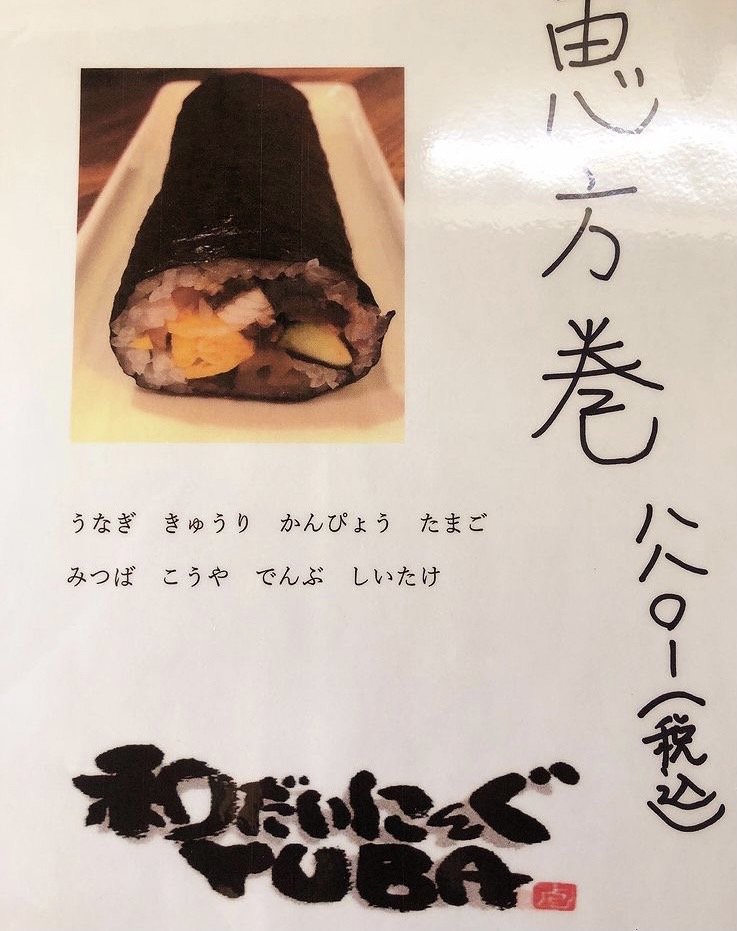 恵方巻
八八〇ー(税込)
うなぎ　きゅうり　かんぴょう　たまご
みつば　こうや　でんぶ　しいたけ
和だいにんぐ
YUBA